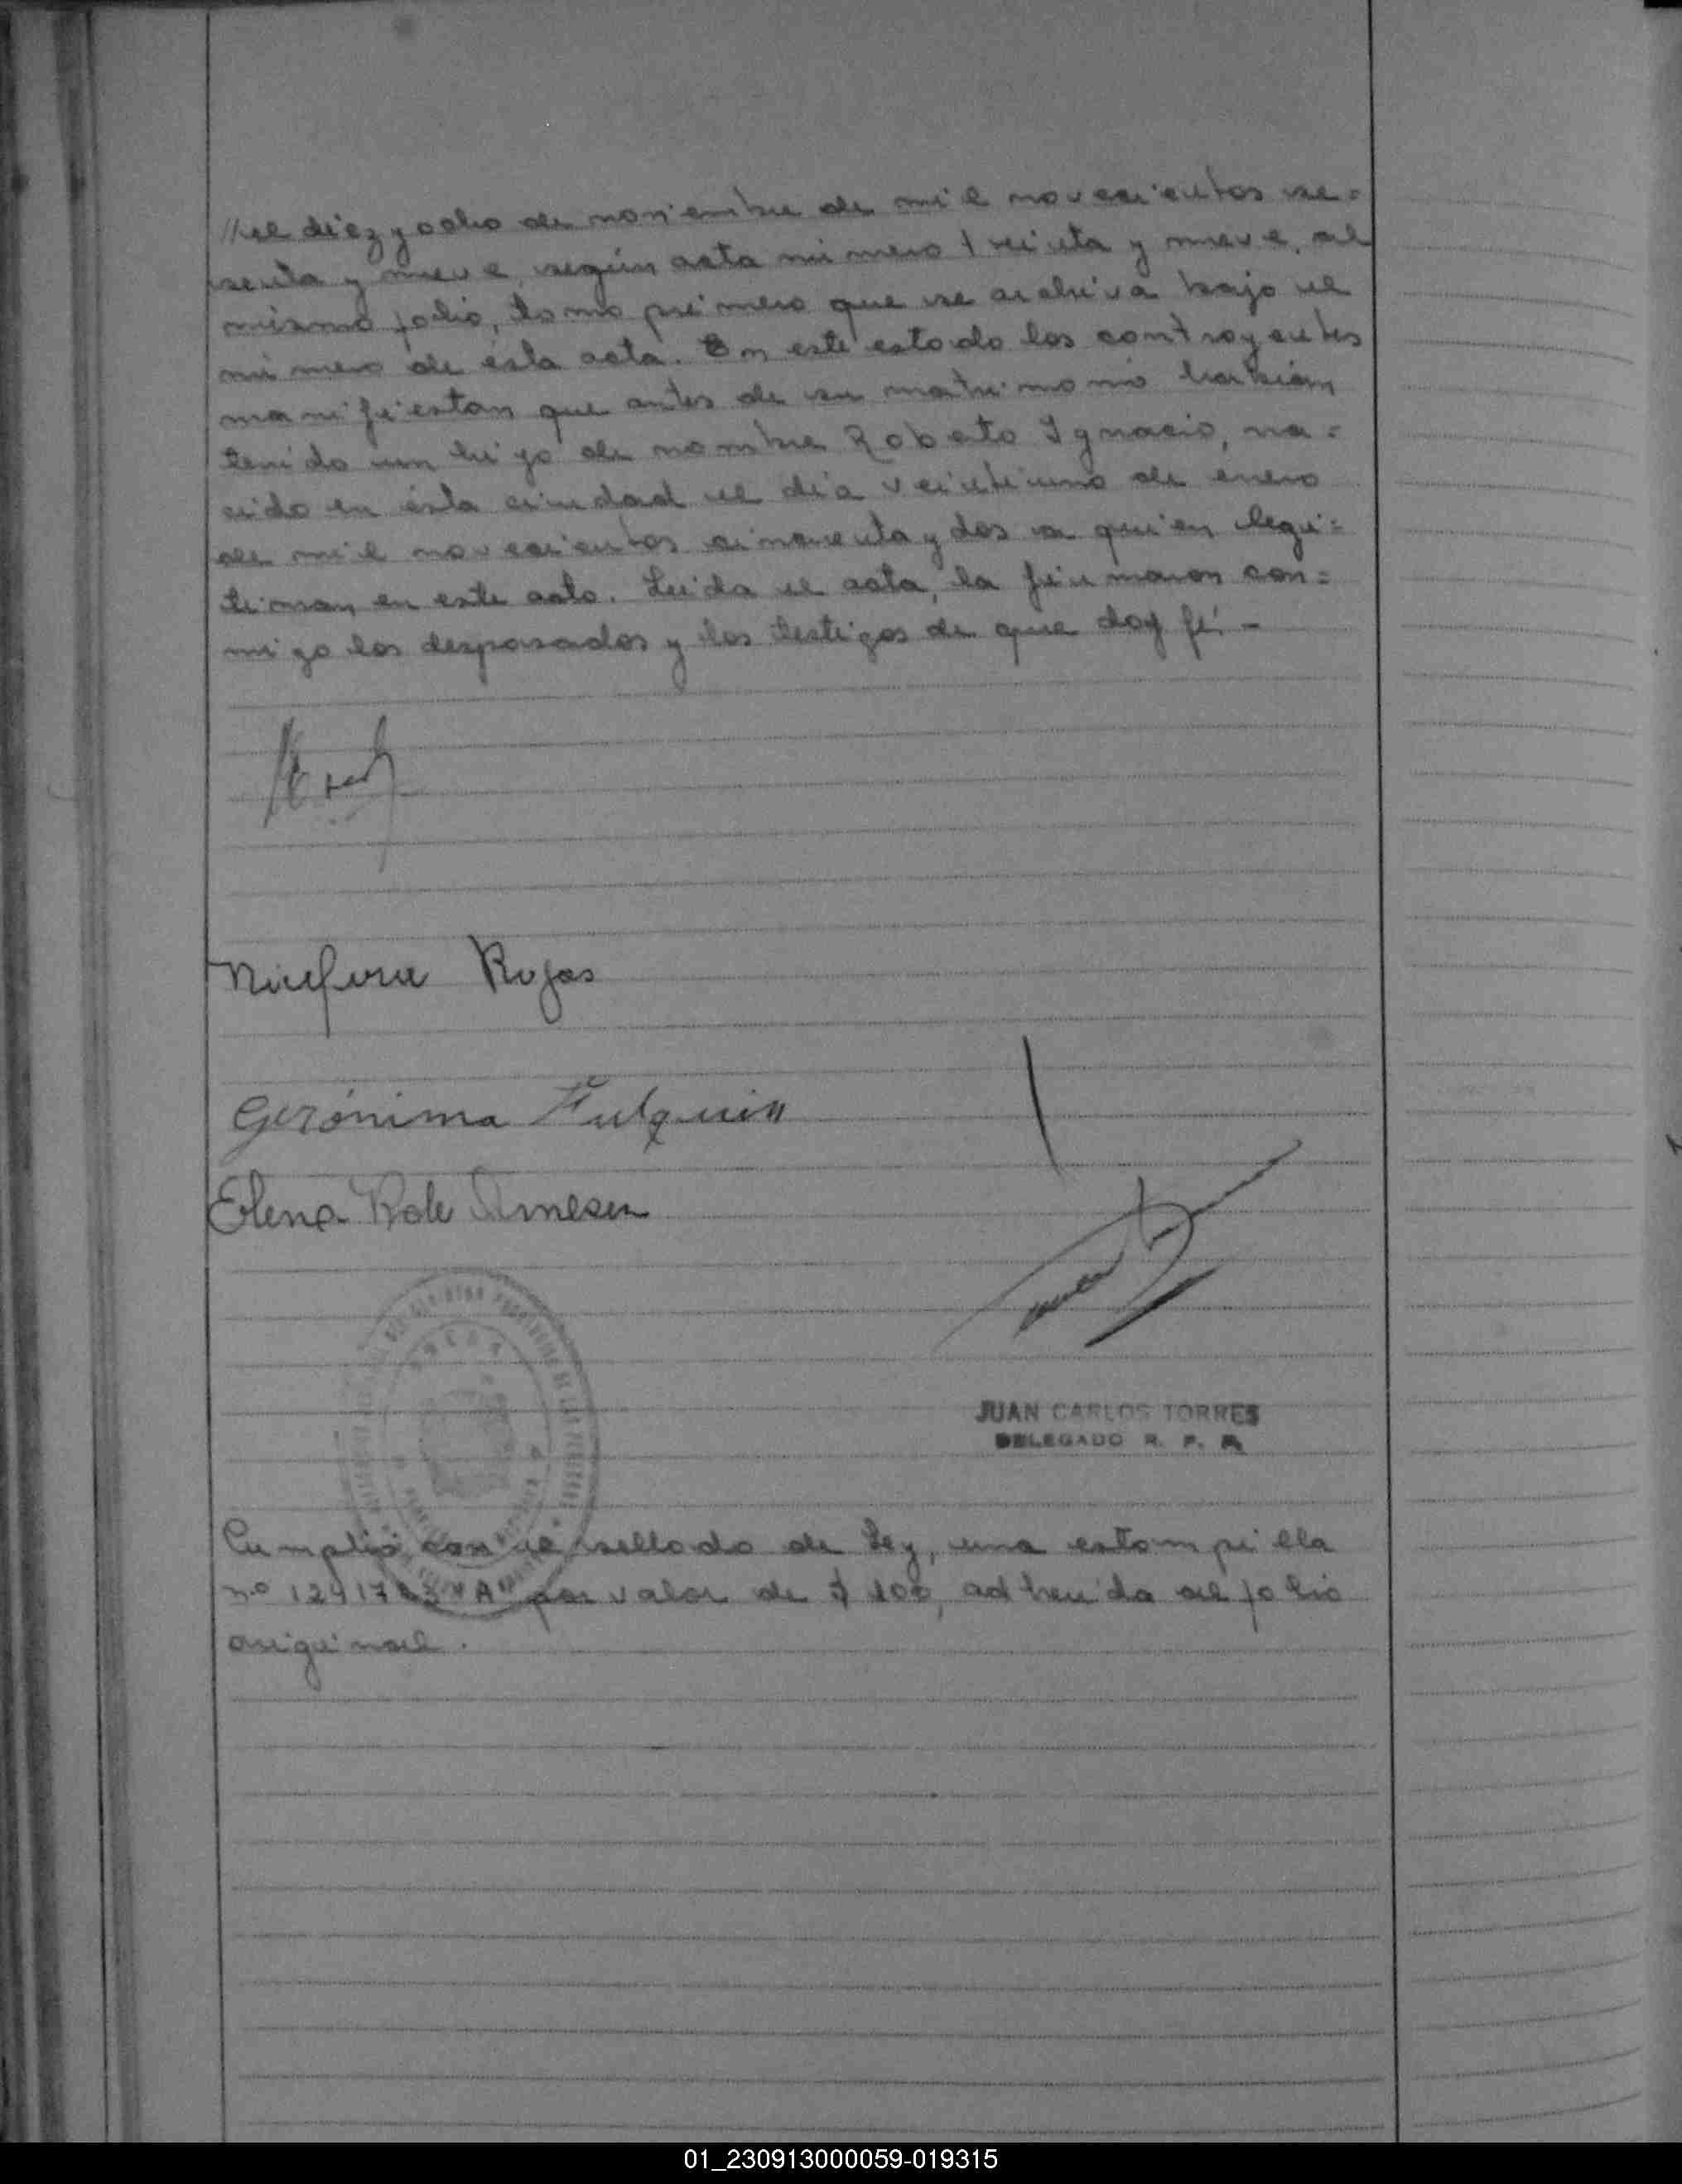 //el diez y ocho de noviembre de mil novecientos se=
senta y nueve, según acta número treinta y nueve, al
mismo folio, tomo primero que se archiva bajo el
número de ésta acta. En este estado los contrayentes
manifiestan que antes de su matrimonio habían
tenido un hijo de nombre Roberto Ignacio, na=
cido en ésta ciudad el día veintiuno de enero
de mil novecientos cincuenta y dos a quien legi=
timan en este acto. Leída el acta, la firmaron con=
migo los desposados y los testigos de que doy fé. -
Rojas
Gerónima Fulquin
Elena
JUAN CARLOS TORRES
DELEGADO R. P. P.
Cumplió con el sellado de Ley, una estampilla
nº "A" por valor de $ 100, adherida al folio
original.
01_230913000059-019315